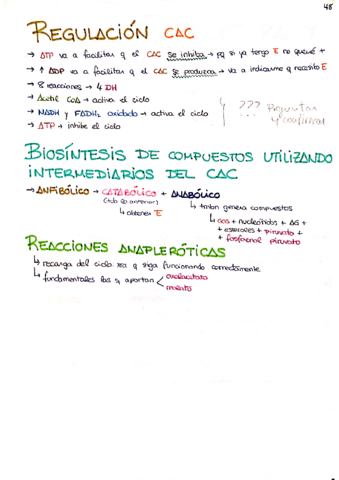 48
REGULACIÓN CAC
→ ATP va a facilitar q el CAC se inhiba → pq si ya tengo E no quiero +
→ ↑ ADP va a facilitar q el CAC se produzca → va a indicarme q necesito E
→ 8 reacciones → 4 DH
→ Acetil CoA → activa el ciclo
→ NADH y FADH₂ oxidado → activa el ciclo
→ ATP → inhibe el ciclo
??? Preguntar
... y confirmar
BIOSÍNTESIS DE COMPUESTOS UTILIZANDO
INTERMEDIARIOS DEL CAC
→ ANFIBÓLICO → CATABÓLICO + ANABÓLICO
(todo lo anterior)
↳ obtener E
↳ tmbn genera compuestos
↳ + nucleótidos + AG +
+ esteroles + piruvato +
+ fosfoenol piruvato
REACCIONES ANAPLERÓTICAS
↳ recarga del ciclo xa q siga funcionando correctamente
↳ fundamentales las q aportan < oxalacetato
malato